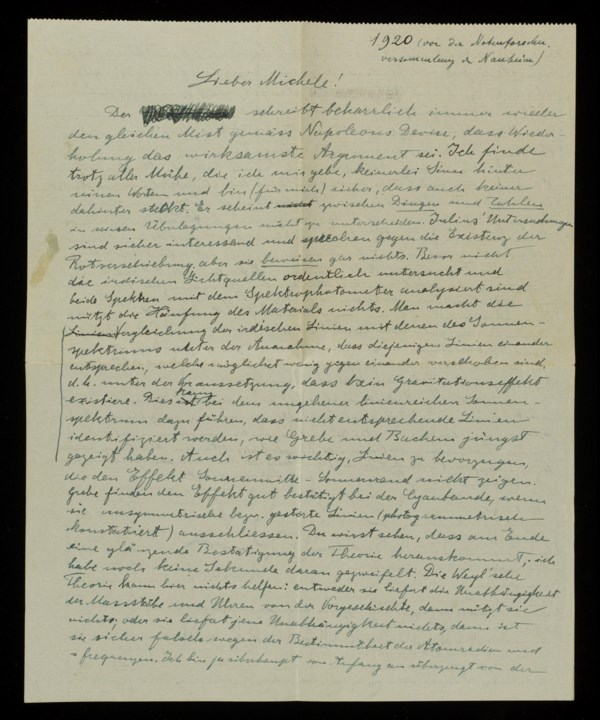 1920 (vor der Naturforscher-
versammlung in Nauheim)
Lieber Michele!
Der schreibt beharrlich immer wieder
den gleichen Mist gemäss Napoleons Devise, dass Wieder-
holung das wirksamste Argument sei. Ich finde
trotz aller Mühe, die ich mir gebe, keinerlei Sinn hinter
seinen Worten und bin (für mich) sicher, dass auch keiner
dahinter steckt. Er scheint nicht zwischen Dingen und Tafeln
in seinen Überlegungen nicht zu unterscheiden. Julius' Untersuchungen
sind sicher interessant und sprechen gegen die Existenz der
Rotverschiebung, aber sie beweisen gar nichts. Bevor nicht
die irdischen Lichtquellen ordentlich untersucht und
beide Spektren mit dem Spektrophotometer analysiert sind
nützt die Häufung des Materials nichts. Man macht die
Linien Vergleichung der irdischen Linien mit denen des Sonnen-
spektrums unter der Annahme, dass diejenigen Linien einander
entsprechen, welche möglichst wenig gegen einander verschoben sind,
d. h. unter der Voraussetzung, dass kein Gravitationseffekt
existiere. Dies kann bei dem ungeheuer linienreichen Sonnen-
spektrum dazu führen, dass nicht entsprechende Linien
identifiziert werden, wie Grebe und Bachem jüngst
gezeigt haben. Auch ist es wichtig, Linien zu bevorzugen,
die den Effekt Sonnenmitte - Sonnenrand nicht zeigen.
Grebe finden den Effekt gut bestätigt bei der Cyanbande, wenn
sie unsymmetrische bezw. gestörte Linien (photogrammetrisch
konstatiert) ausschliessen. Du wirst sehen, dass am Ende
eine glänzende Bestätigung der Theorie herauskommt; ich
habe noch keine Sekunde daran gezweifelt. Die Weyl'sche
Theorie kann hier nichts helfen: entweder sie liefert die Unabhängigkeit
der Massstäbe und Uhren von der Vorgeschichte, dann nützt sie
nichts; oder sie liefert jene Unabhängigkeit nicht, dann ist
sie sicher falsch wegen der Bestimmtheit der Atomradien und
- frequenzen. Ich bin ja überhaupt von Anfang an überzeugt von der